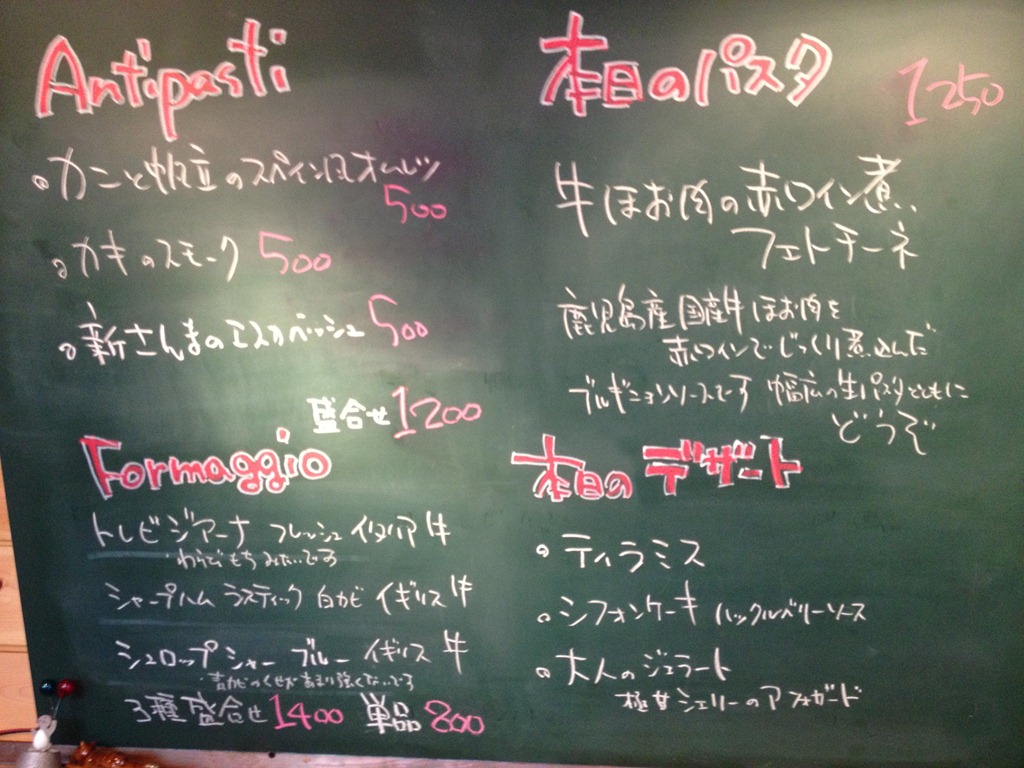 Antipasti
カニと帆立のスペイン風オムレツ
500
カキのスモーク 500
新さんまのエスカベッシュ 500
盛合せ 1200
Formaggio
トレビジアーナ フレッシュ イタリア 牛
わらびもちみたいです
シャープハム ラスティック 白カビ イギリス 牛
シュロップシャー ブルー イギリス 牛
青カビのくせがあまり強くないです
3種盛合せ 1400 単品 800
本日のパスタ 1250
牛ほお肉の赤ワイン煮
フェトチーネ
鹿児島産国産牛ほお肉を
赤ワインでじっくり煮込んだ
ブルギニョンソースです 幅広の生パスタとともに
どうぞ
本日のデザート
ティラミス
シフォンケーキ ハックルベリーソース
大人のジェラート
極甘シェリーのアフォガード